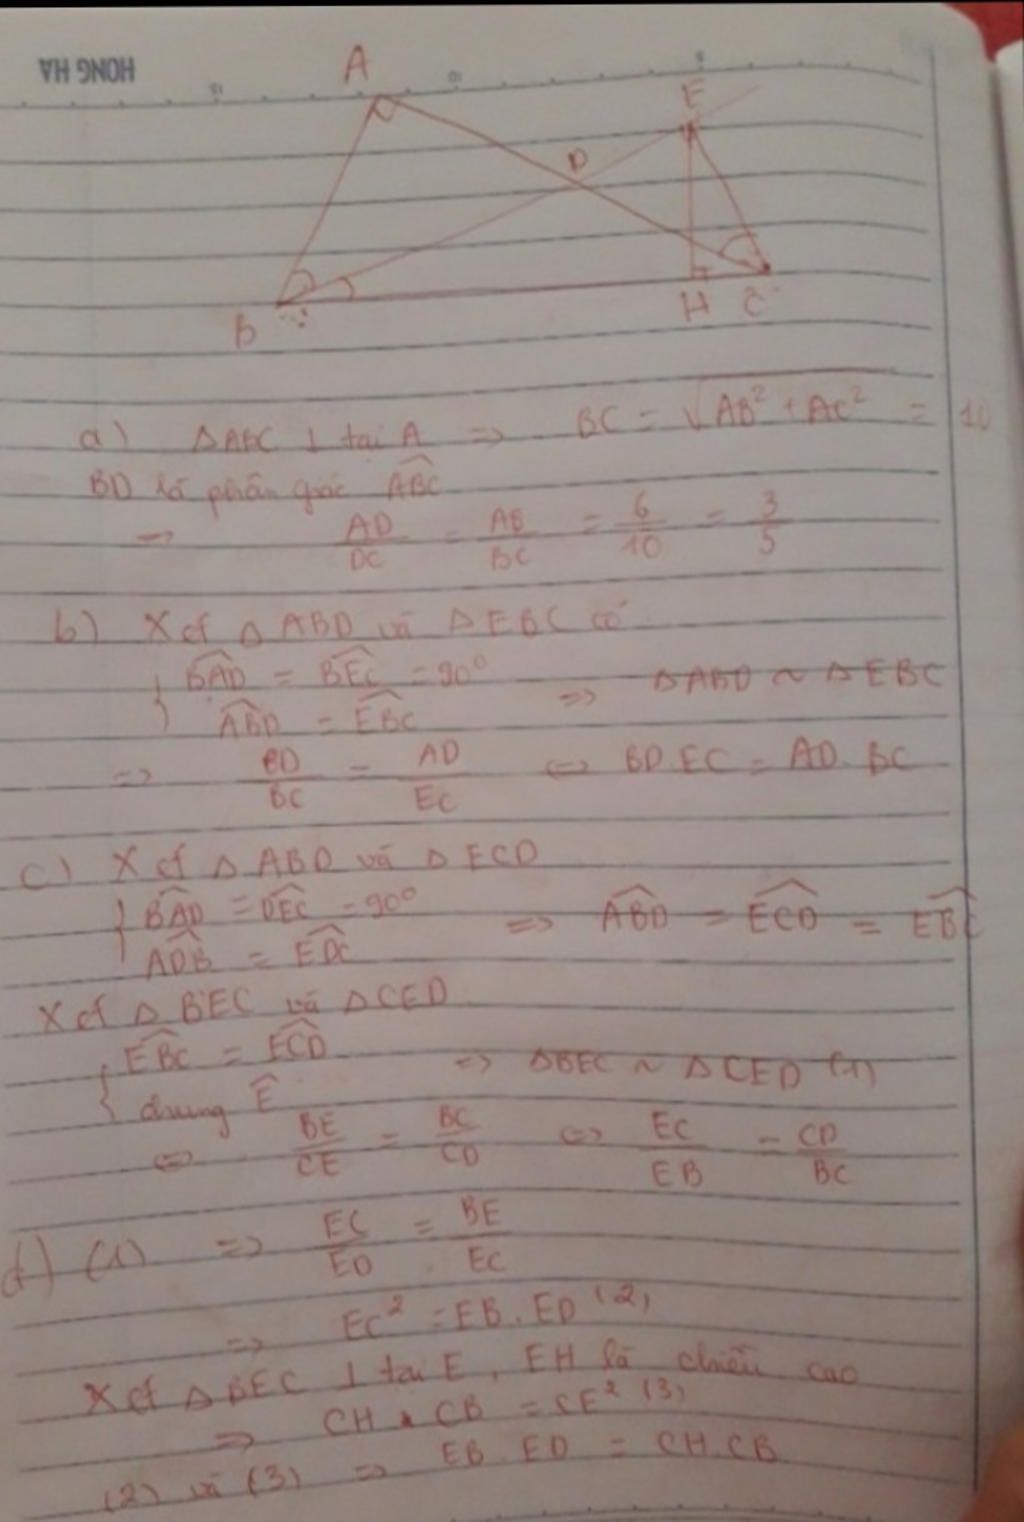 HONG HA
A
E
D
B
H C
a) ΔABC ⊥ tại A => BC = √AB² + AC² = 10
BD là phân giác ABC
=> AD/DC = AB/BC = 6/10 = 3/5
b) Xét Δ ABD và Δ EBC có
{ BAD = BEC = 90°
ABD = EBC => ΔABD ~ Δ EBC
=> BD/BC = AD/EC <=> BD.EC = AD.BC
c) Xét Δ ABD và Δ ECD
{ BAD = DEC = 90°
ADB = EDC => ABD = ECD = EBC
Xét Δ BEC và ΔCED
{ EBC = ECD
chung E => ΔBEC ~ ΔCED (1)
<=> BE/CE = BC/CD <=> EC/EB = CD/BC
d) (1) => EC/ED = BE/EC
=> EC² = EB.ED (2)
Xét ΔBEC ⊥ tại E, EH là chiều cao
=> CH . CB = CE² (3)
(2) và (3) => EB.ED = CH.CB